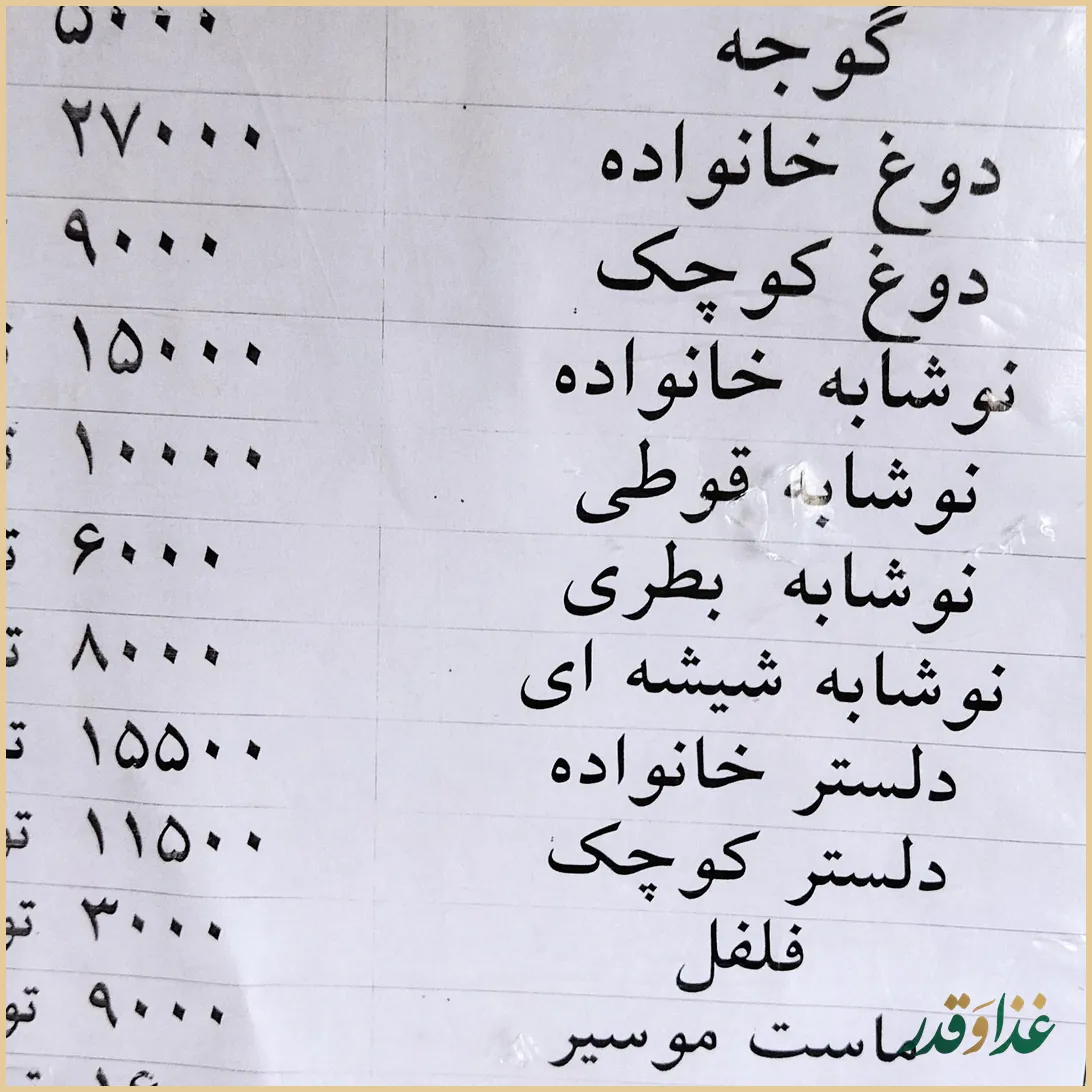 گوجه ۵۰۰۰
دوغ خانواده ۲۷۰۰۰
دوغ کوچک ۹۰۰۰
نوشابه خانواده ۱۵۰۰۰
نوشابه قوطی ۱۰۰۰۰
نوشابه بطری ۶۰۰۰
نوشابه شیشه ای ۸۰۰۰
دلستر خانواده ۱۵۵۰۰
دلستر کوچک ۱۱۵۰۰
فلفل ۳۰۰۰
ماست موسیر ۹۰۰۰
غذا وَ قدر